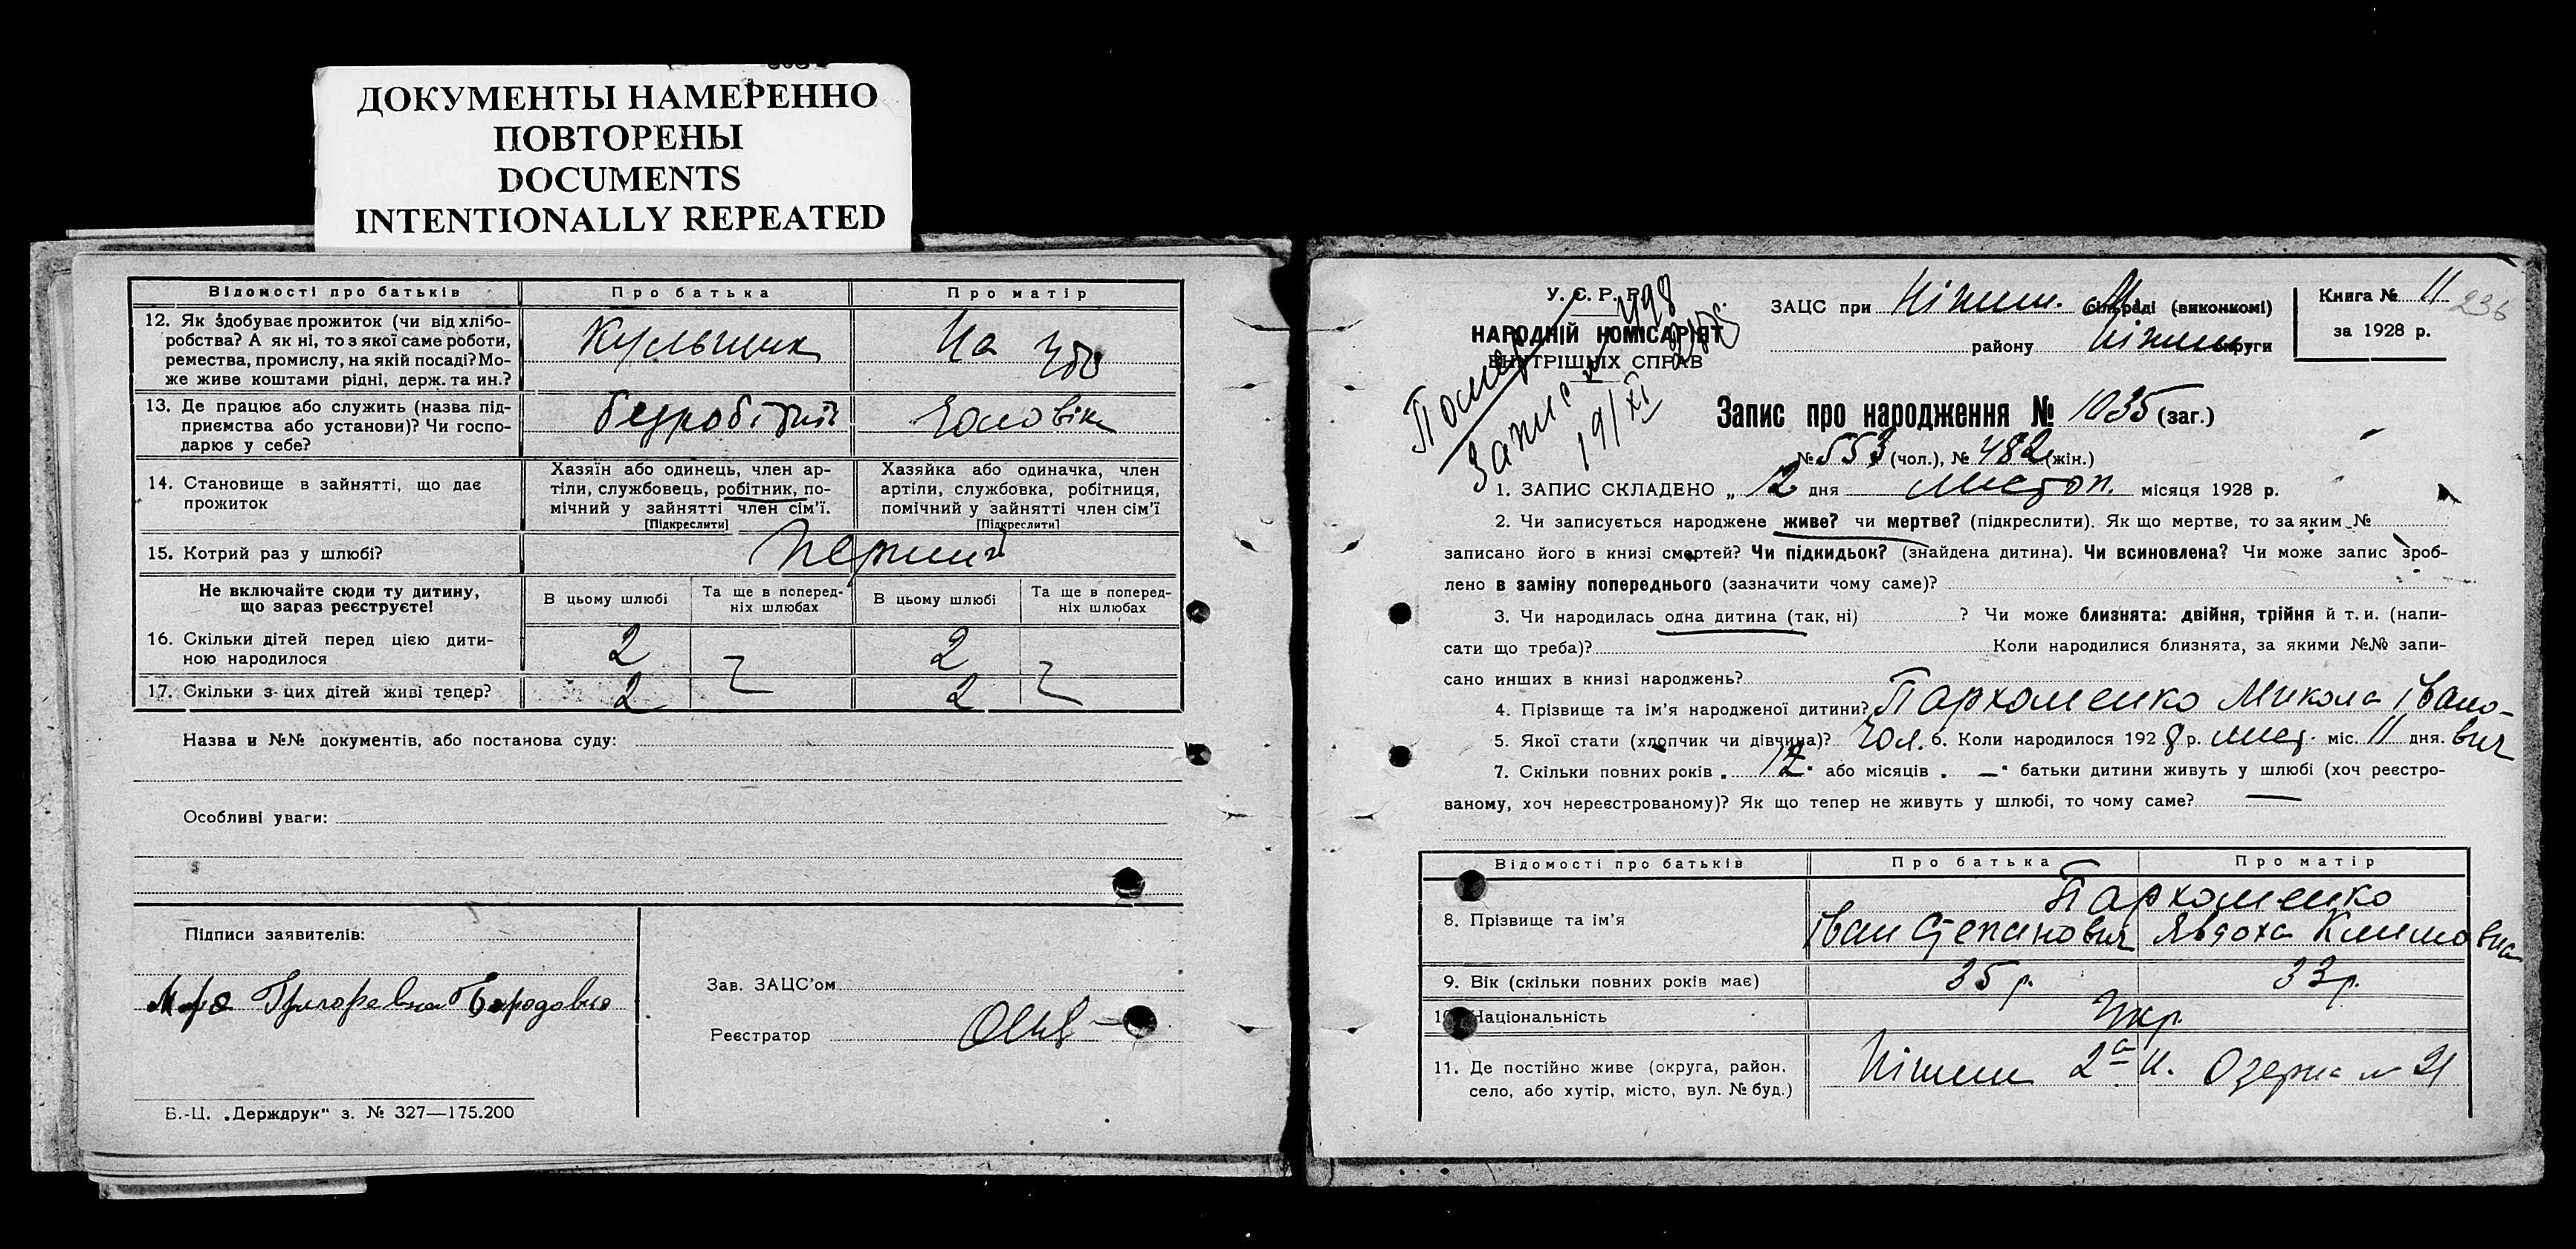 ДОКУМЕНТЫ НАМЕРЕННО
ПОВТОРЕНЫ
DOCUMENTS
INTENTIONALLY REPEATED
Відомості про батьків Про батька Про матір
12. Як здобуває прожиток (чи від хлібо-
робства? А як ні, то з якої саме роботи,
ремества, промислу, на якій посаді? Мо-
же живе коштами рідні, держ. та ин.?
На
13. Де працює або служить (назва під-
приємства або установи)? Чи госпо-
дарює у себе?
безробітний чоловік
14. Становище в зайнятті, що дає
прожиток
Хазяїн або одинець, член ар-
тіли, службовець, робітник, по-
мічний у зайнятті член сім'ї.
[Підкреслити]
Хазяйка або одиначка, член
артіли, службовка, робітниця,
помічний у зайнятті член сім'ї
[Підкреслити]
15. Котрий раз у шлюбі? перший
Не включайте сюди ту дитину,
що зараз реєструєте!
В цьому шлюбі
Та ще в поперед-
ніх шлюбах
В цьому шлюбі
Та ще в поперед-
ніх шлюбах
16. Скільки дітей перед цією дити-
ною народилося
2 2
17. Скільки з цих дітей живі тепер? 2 2
Назва и №№ документів, або постанова суду:
Особливі уваги:
Підписи заявителів:
Зав. ЗАЦС'ом
Реєстратор
Б.-Ц. „Держдрук" з. № 327—175.200
У. С. Р. Р.
НАРОДНІЙ КОМІСАРІЯТ
ВНУТРІШНІХ СПРАВ
Помер
Запис № 498
19/XI 28 р.
ЗАЦС при Ніжин. сільраді (виконкомі)
району Ніжин. округи
Книга № 11
за 1928 р.
236
Запис про народження № 1035 (заг.)
№ 553 (чол.), № 482 (жін.)
1. ЗАПИС СКЛАДЕНО „ 12 дня листоп. місяця 1928 р.
2. Чи записується народжене живе? чи мертве? (підкреслити). Як що мертве, то за яким №
записано його в книзі смертей? Чи підкидьок? (знайдена дитина). Чи всиновлена? Чи може запис зроб-
лено в заміну попереднього (зазначити чому саме)?
3. Чи народилась одна дитина (так, ні) ? Чи може близнята: двійня, трійня й т. и. (напи-
сати що треба)? Коли народилися близнята, за якими №№ запи-
сано инших в книзі народжень?
4. Прізвище та ім'я народженої дитини? Пархоменко Микола Івано-
вич
5. Якої стати (хлопчик чи дівчина)? чол. 6. Коли народилося 1928 р. лист. міс. 11 дня.
7. Скільки повних років 12 або місяців — батьки дитини живуть у шлюбі (хоч реєстро-
ваному, хоч нереєстрованому)? Як що тепер не живуть у шлюбі, то чому саме? —
Відомості про батьків Про батька Про матір
8. Прізвище та ім'я
Пархоменко
Іван Степанович Явдоха Климовна
9. Вік (скільки повних років має) 35 р. 33 р.
10. Національність Укр.
11. Де постійно живе (округа, район,
село, або хутір, місто, вул. № буд.)
Ніжин 2а ч. Озерна № 21